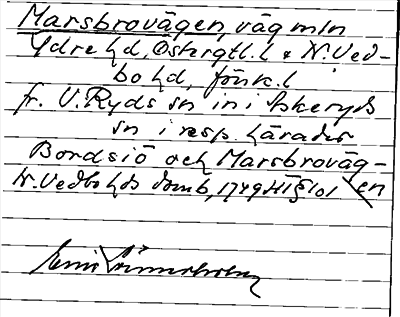 Marsbrovägen, väg mln
Ydre hd, Östergtl. l & N. Ved-
bo hd, Jönk. l
fr. V. Ryds sn in i Askeryds
sn i resp. härader
Bordsiö och Marsbroväg-
en
N. Vedbo hds domb, 1749 HT § 101